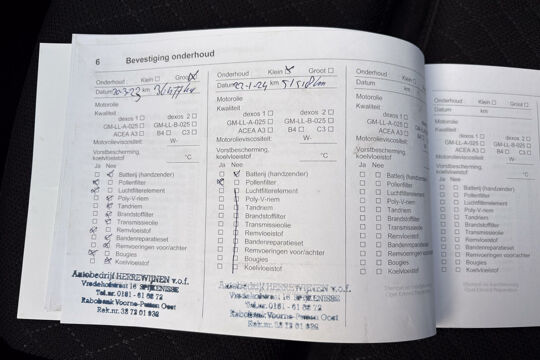 6 Bevestiging onderhoud
Onderhoud Klein Groot
Datum 20-3-23 km
Motorolie
Kwaliteit:
dexos 1 dexos 2
GM-LL-A-025 GM-LL-B-025
ACEA A3 B4 C3
Motorolieviscositeit: W-
Vorstbescherming,
koelvloeistof °C
Ja Nee
Batterij (handzender)
Pollenfilter
Luchtfilterelement
Poly-V-riem
Tandriem
Brandstoffilter
Transmissieolie
Remvloeistof
Bandenreparatieset
Remvoeringen voor/achter
Bougies
Koelvloeistof
Autobedrijf HERREWIJNEN v.o.f.
Vredehofstraat 16 SPIJKENISSE
Tel.nr. 0181 - 61 88 72
Rabobank Voorne-Putten Oost
Rek.nr.
Onderhoud Klein Groot
Datum 22-1-24 km
Motorolie
Kwaliteit:
dexos 1 dexos 2
GM-LL-A-025 GM-LL-B-025
ACEA A3 B4 C3
Motorolieviscositeit: W-
Vorstbescherming,
koelvloeistof °C
Ja Nee
Batterij (handzender)
Pollenfilter
Luchtfilterelement
Poly-V-riem
Tandriem
Brandstoffilter
Transmissieolie
Remvloeistof
Bandenreparatieset
Remvoeringen voor/achter
Bougies
Koelvloeistof
Autobedrijf HERREWIJNEN v.o.f.
Vredehofstraat 16 SPIJKENISSE
Tel.nr. 0181 - 61 88 72
Rabobank Voorne-Putten Oost
Rek.nr.
Onderhoud Klein
Datum km
Motorolie
Kwaliteit:
dexos 1
GM-LL-A-025
ACEA A3
Motorolieviscositeit:
Vorstbescherming,
koelvloeistof
Ja Nee
Batterij (handzender)
Pollenfilter
Luchtfilterelement
Poly-V-riem
Tandriem
Brandstoffilter
Transmissieolie
Remvloeistof
Bandenreparatieset
Remvoeringen voor/achter
Bougies
Koelvloeistof
Onderhoud
Datum
km
Motorolie
Kwaliteit:
dexos 1
GM-LL-A-025
ACEA A3
Motorolieviscositeit:
Vorstbescherming,
koelvloeistof
Ja Nee
Batterij (handzender)
Pollenfilter
Luchtfilterelement
Poly-V-riem
Tandriem
Brandstoffilter
Transmissieolie
Remvloeistof
Bandenreparatieset
Remvoeringen voor/achter
Bougies
Koelvloeistof